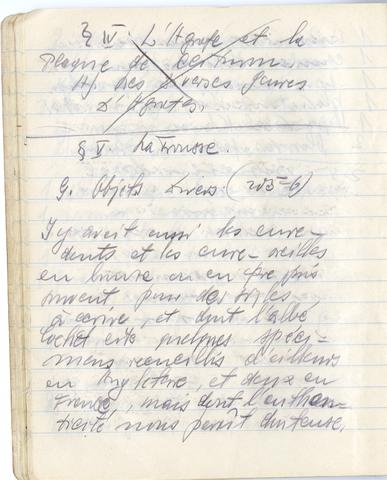 § IV. L'Agrafe et la
Plaque de Ceinturon.
H. Des diverses formes
d'Agrafes.
§ V. La Trousse.
G. Objets divers. (205-6)
Il y avait aussi les cure-
dents et les cure-oreilles
en bronze ou en fer pris
souvent pour des styles
à écrire, et dont l'abbé
Cochet cite quelques spéci-
mens recueillis d'ailleurs
en Angleterre, et deux en
France, mais dont l'authen-
ticité nous paraît douteuse.